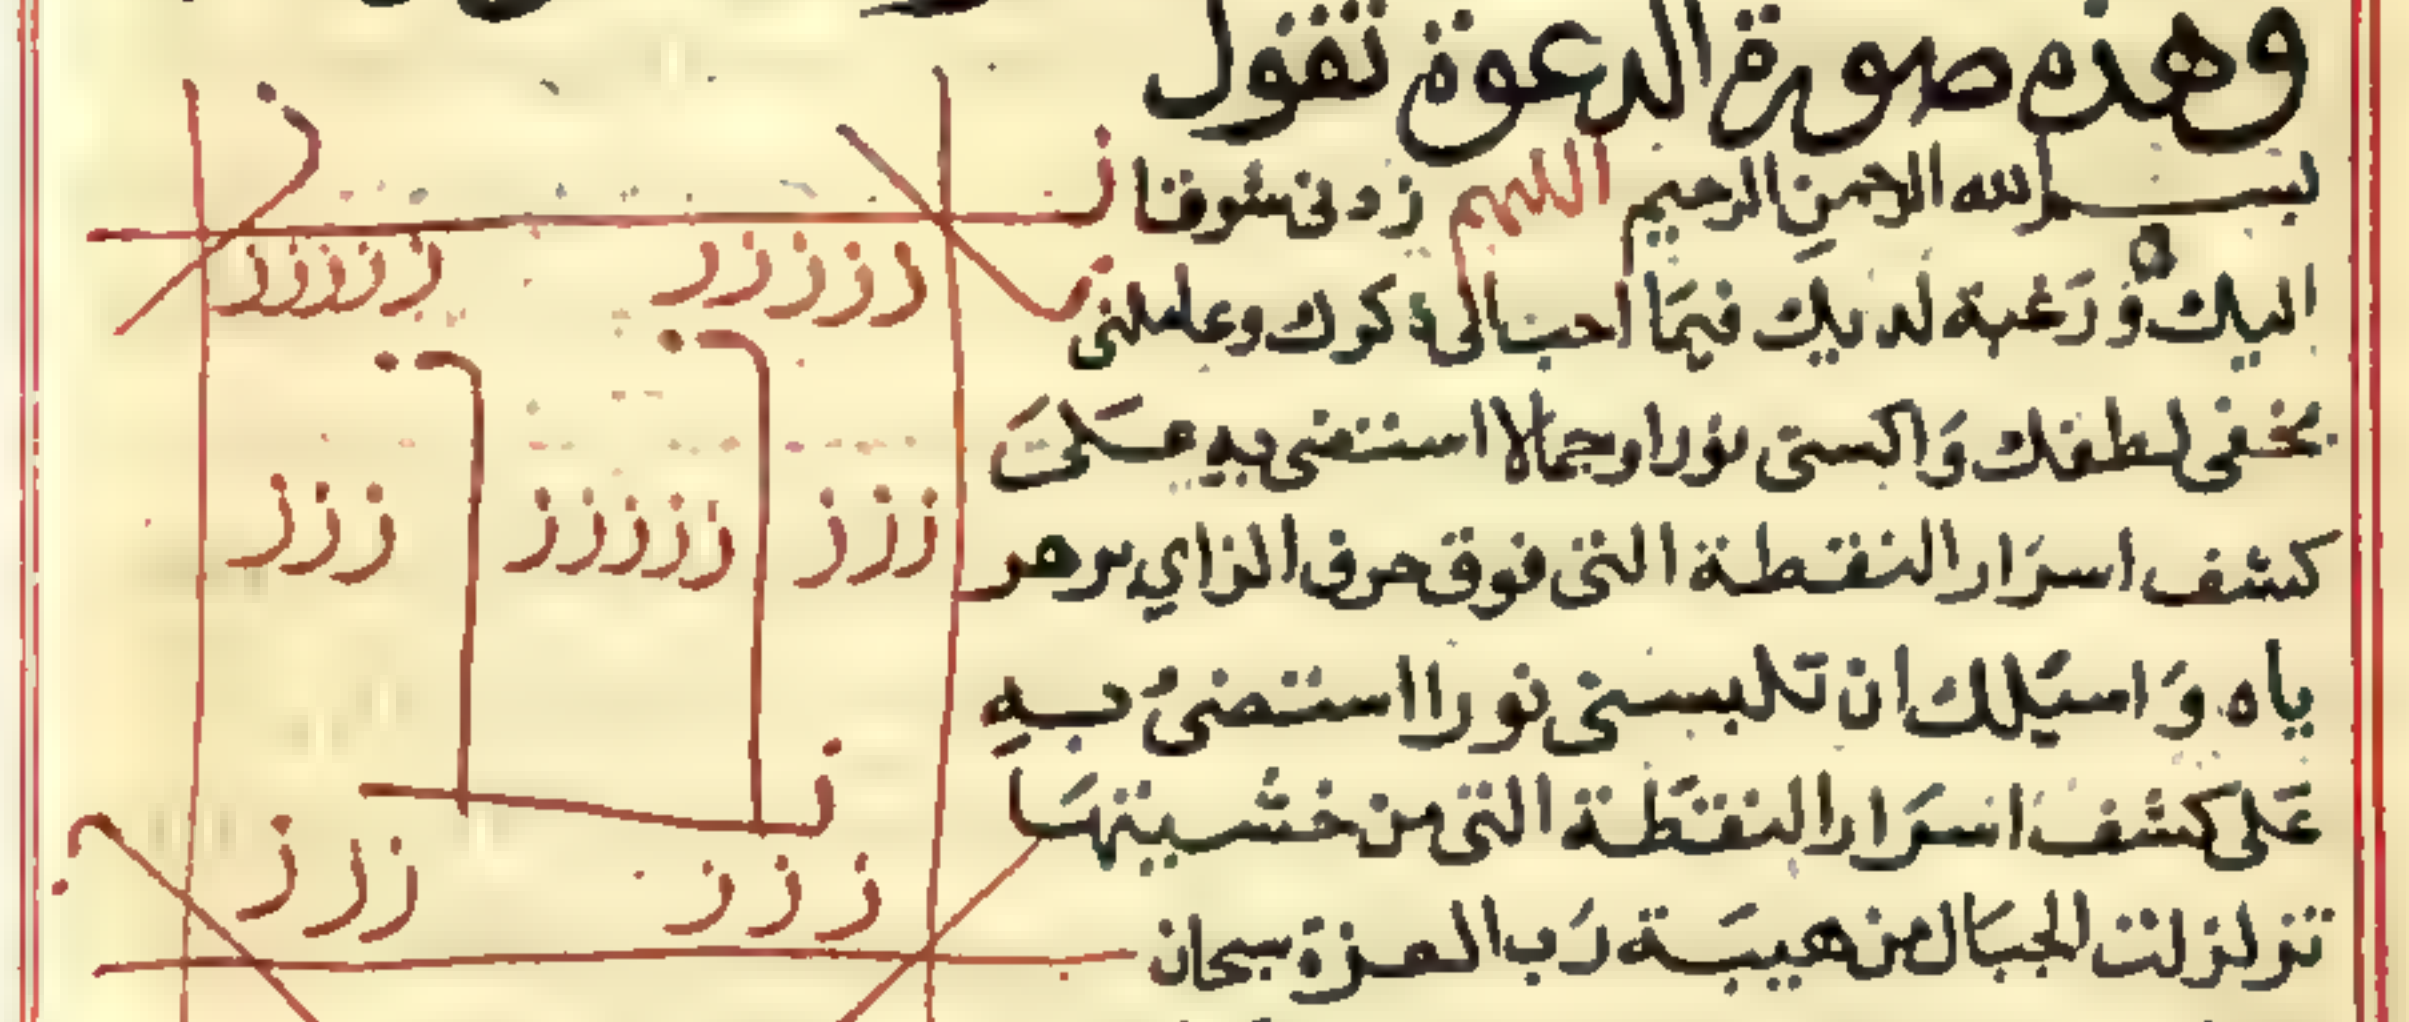 وهذه صورة الدعوة تقول
بسم الله الرحمن الرحيم اللهم زدنى شوقا
اليك وَرَغبة لديك فيمَا احب الى ذكرك وعاملنى
بخفى لطفك وَاكسنى نورا وجمالا استضى به عَلى
كشف اسرَار النقطة التى فوق حرف الزاي برهر
ياه وَاسيَلك ان تَلبسنى نورا استضىُ بهِ
عَلى كشف اسرَار النقَطة التى من خشيتهَا
تزلزلت الجبَال من هيبَة رَب العزة سبحان
ز
ز
ز
ززززز ززززز
ززز ززززز ززز
ز
ززز ززز